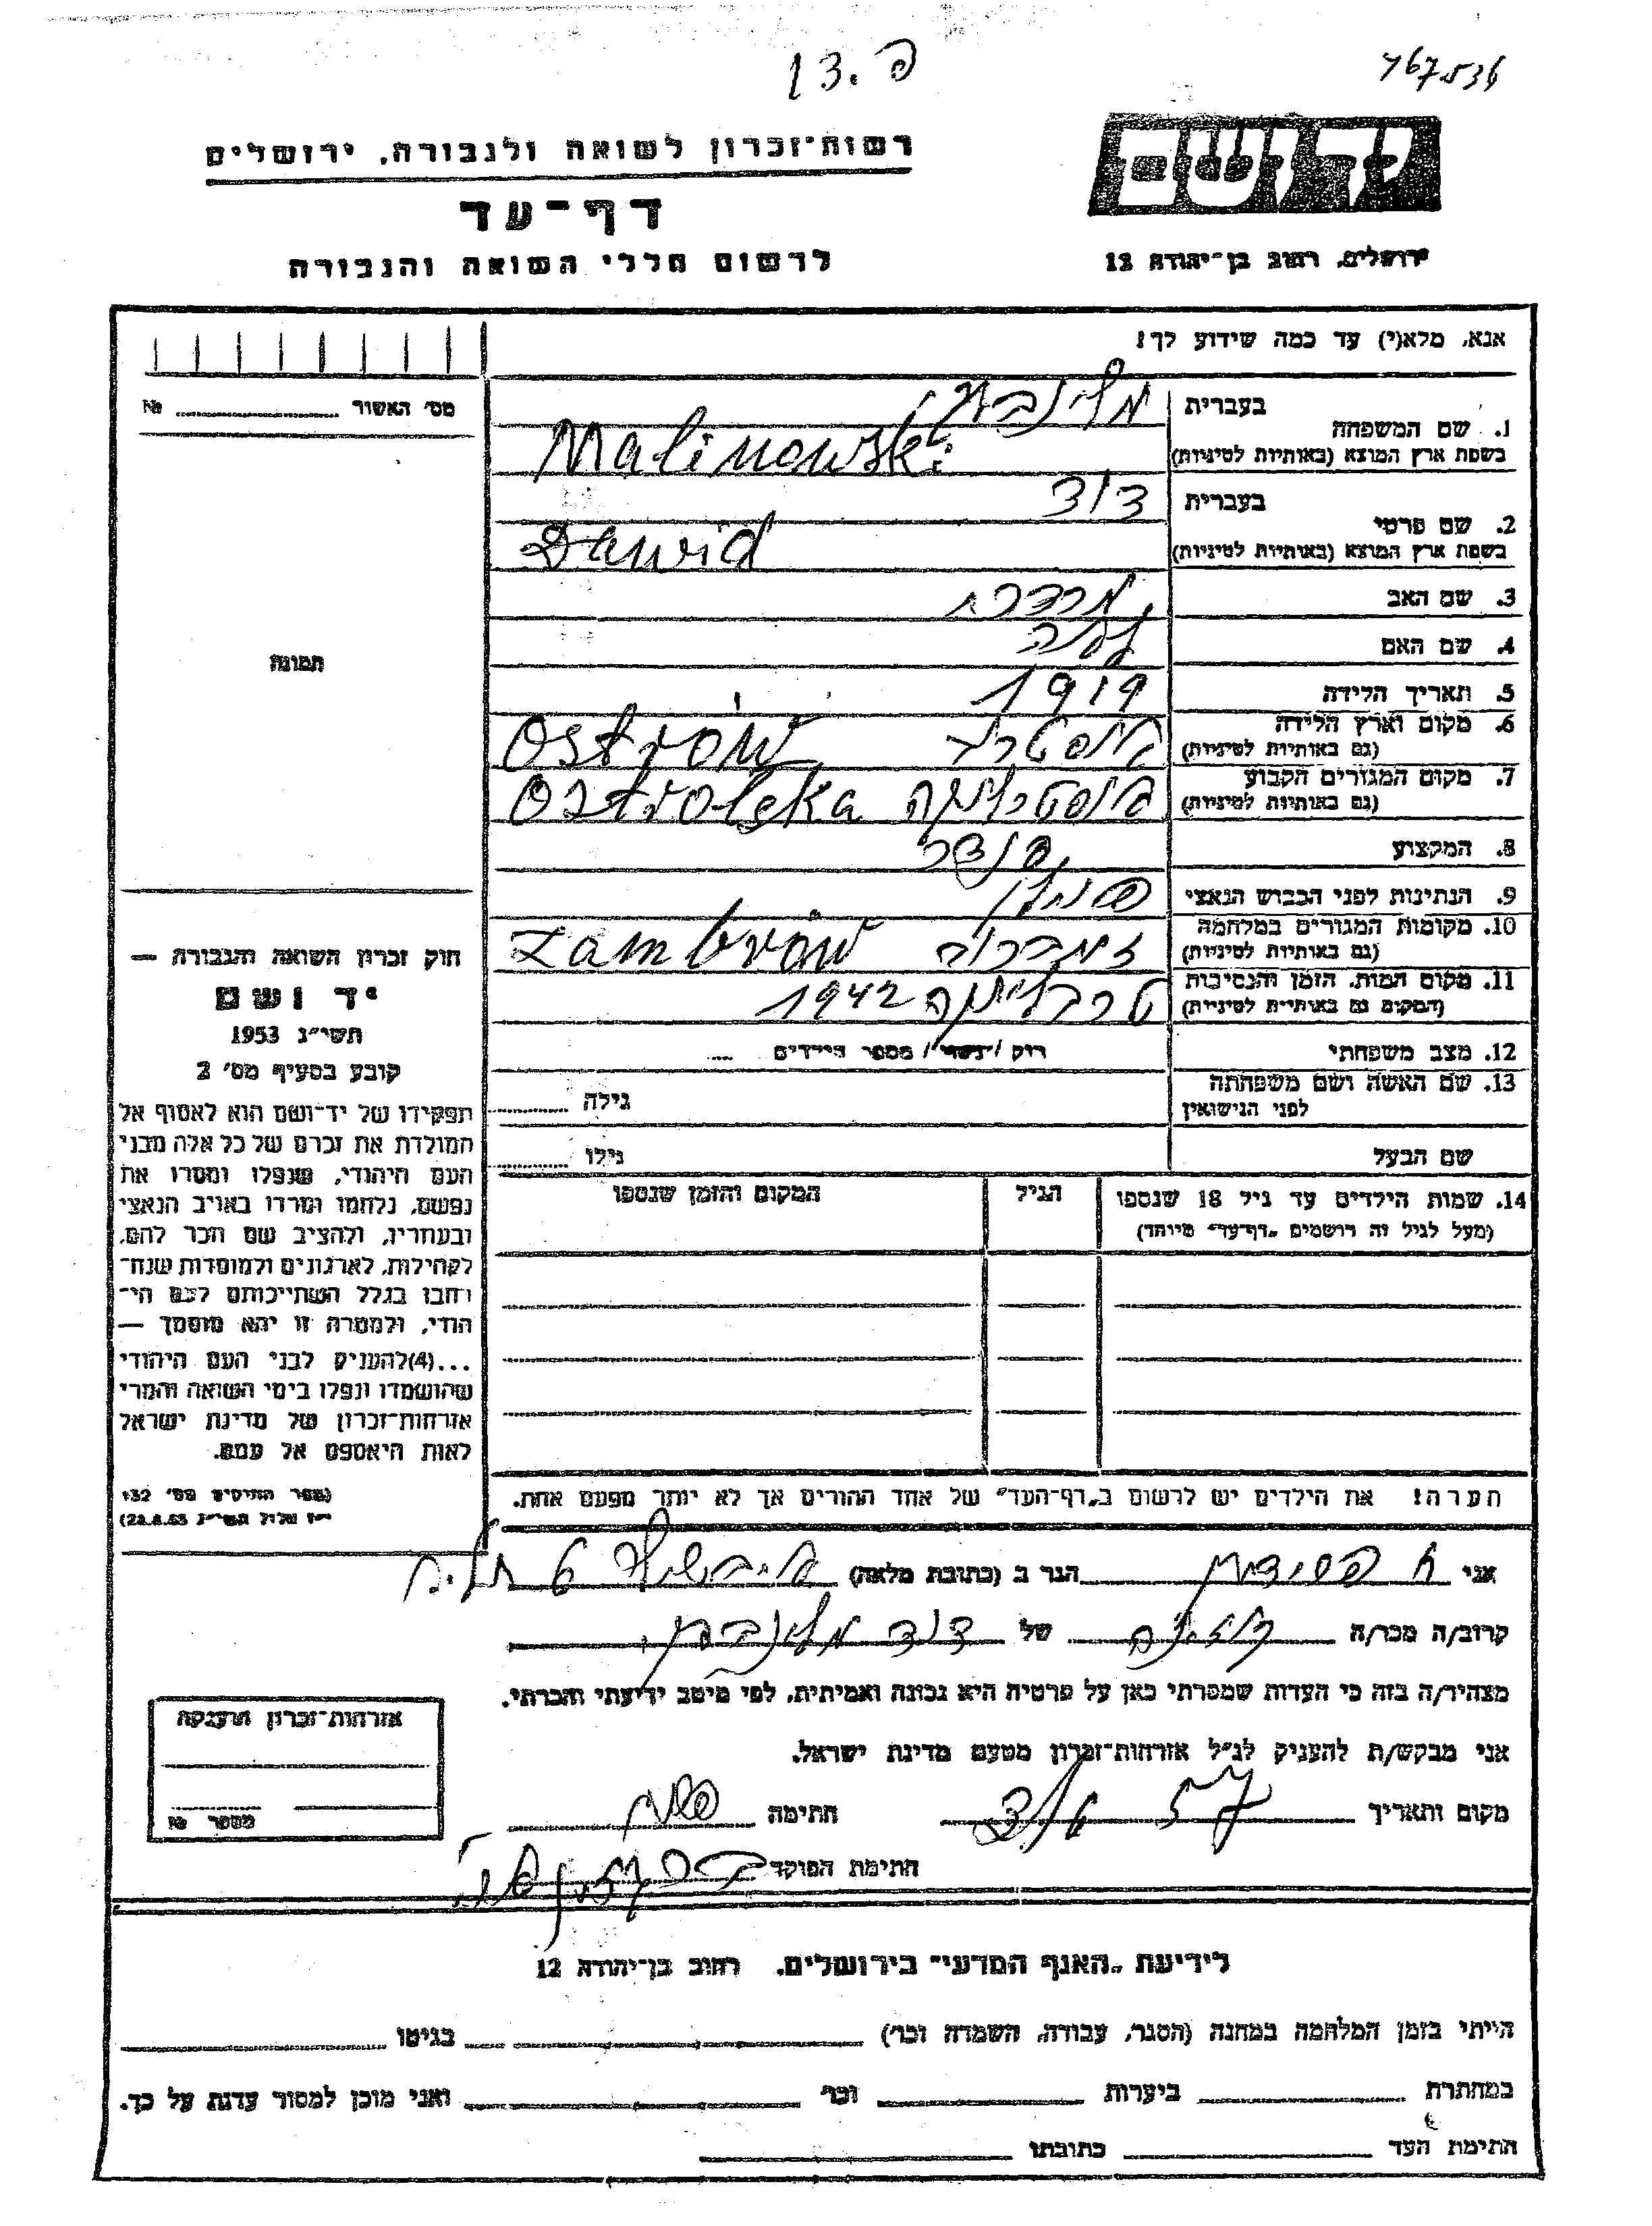 פ. 31
467536
רשות־זכרון לשואה ולגבורה, ירושלים
דף־עד
לרשום חללי השואה והגבורה
יד ושם
ירושלים, רחוב בן־יהודה 12
אנא, מלא(י) עד כמה שידוע לך!
מס׳ האשור № 
1. שם המשפחה
בעברית מלינבסקי
בשפת ארץ המוצא (באותיות לטיניות) Malinowski
2. שם פרטי
בעברית דוד
בשפת ארץ המוצא (באותיות לטיניות) Dawid
3. שם האב מרדכי
4. שם האם
5. תאריך הלידה 1919
6. מקום וארץ הלידה
(גם באותיות לטיניות) Ostrów
7. מקום המגורים הקבוע
(גם באותיות לטיניות) אוסטרולנקה Ostrolęka
8. המקצוע
9. הנתינות לפני הכבוש הנאצי פולין
10. מקומות המגורים במלחמה
(גם באותיות לטיניות) זמברוב Zambrów
11. מקום המות, הזמן והנסיבות
(המקום גם באותיות לטיניות) טרבלינקה 1942
12. מצב משפחתי רווק / נשוי / מספר הילדים
13. שם האשה ושם משפחתה
לפני הנישואין גילה
שם הבעל גילו
14. שמות הילדים עד גיל 18 שנספו הגיל המקום והזמן שנספו
(מעל לגיל זה רושמים „דף־עד״ מיוחד)
הערה! את הילדים יש לרשום ב„דף־העד״ של אחד ההורים אך לא יותר מפעם אחת.
תמונה
חוק זכרון השואה והגבורה —
יד ושם
תשי״ג 1953
קובע בסעיף מס׳ 2
תפקידו של יד־ושם הוא לאסוף אל
המולדת את זכרם של כל אלה מבני
העם היהודי, שנפלו ומסרו את
נפשם, נלחמו ומרדו באויב הנאצי
ובעוזריו, ולהציב שם וזכר להם,
לקהילות, לארגונים ולמוסדות שנח־
רבו בגלל השתייכותם לעם הי־
הודי, ולמטרה זו יהא מוסמך —
...(4)להעניק לבני העם היהודי
שהושמדו ונפלו בימי השואה והמרי
אזרחות־זכרון של מדינת ישראל
לאות היאספם אל עמם.
(ספר החוקים מס׳ 132
י״ז אלול תשי״ג 28.8.53)
אני הגר ב (כתובת מלאה)
קרוב/ה מכר/ה של דוד מלינבסקי
מצהיר/ה בזה כי העדות שמסרתי כאן על פרטיה היא נכונה ואמיתית, לפי מיטב ידיעתי והכרתי.
אני מבקש/ת להעניק לנ״ל אזרחות־זכרון מטעם מדינת ישראל.
מקום ותאריך חתימה
חתימת הפוקד
אזרחות־זכרון הוענקה
מספר №
לידיעת „האגף המדעי״ בירושלים, רחוב בן־יהודה 12
הייתי בזמן המלחמה במחנה (הסגר, עבודה, השמדה וכו׳) בגיטו
במחתרת ביערות וכו׳ ואני מוכן למסור עדות על כך.
חתימת העד כתובתו